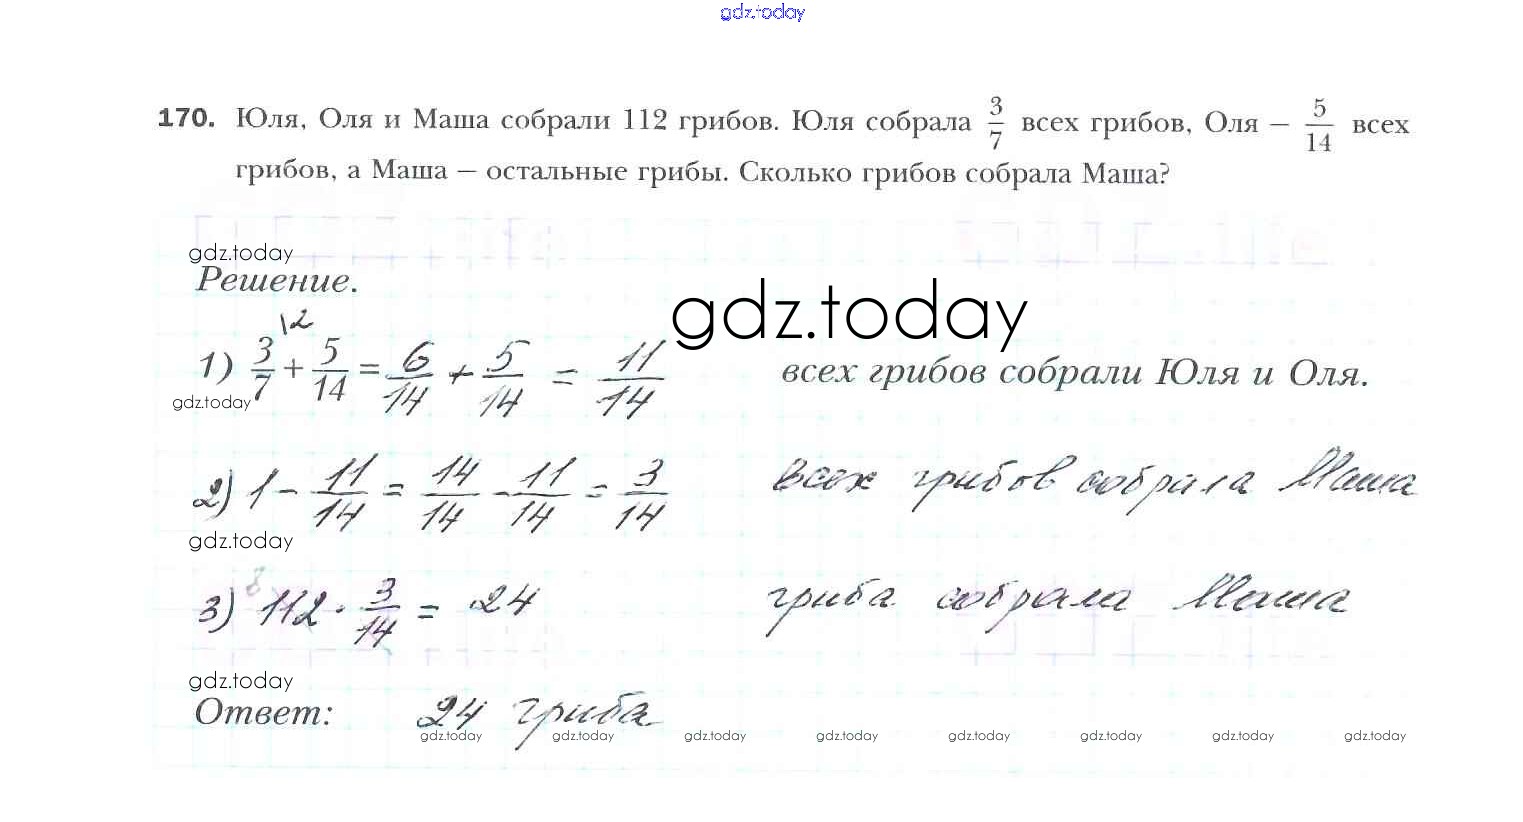 gdz.today
170. Юля, Оля и Маша собрали 112 грибов. Юля собрала 3/7 всех грибов, Оля – 5/14 всех
грибов, а Маша – остальные грибы. Сколько грибов собрала Маша?
gdz.today
Решение.
gdz.today
1) 3/7\2 + 5/14 = 6/14 + 5/14 = 11/14 всех грибов собрали Юля и Оля.
gdz.today
2) 1 - 11/14 = 14/14 - 11/14 = 3/14 всех грибов собрала Маша
gdz.today
3) 112 · 3/14 = 24 гриба собрала Маша
gdz.today
Ответ: 24 гриба
gdz.today gdz.today gdz.today gdz.today gdz.today gdz.today gdz.today gdz.today